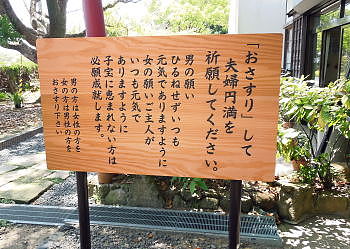 「おさすり」して
夫婦円満を
祈願してください。
男の願い
ひるねせずいつも
元気でありますように
女の願いご主人が
いつも元気で
ありますように
子宝に恵まれない方は
必願成就します。
男の方は女性の方を
女の方は男性の方を
おさすり下さい